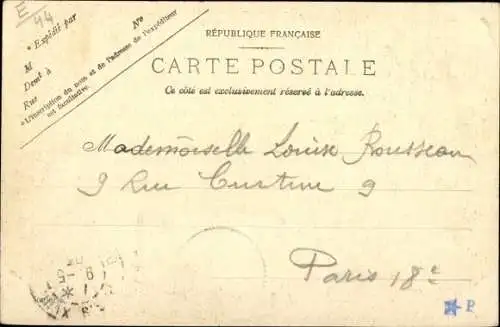 E
44
RÉPUBLIQUE FRANÇAISE
CARTE POSTALE
Ce côté est exclusivement réservé à l'adresse.
* Expédié par
No
M
Demt à
Rue
* L'inscription du nom et de l'adresse de l'expéditeur
est facultative.
Mademoiselle Louise Rousseau
9 Rue Custine 9
Paris 18e
P